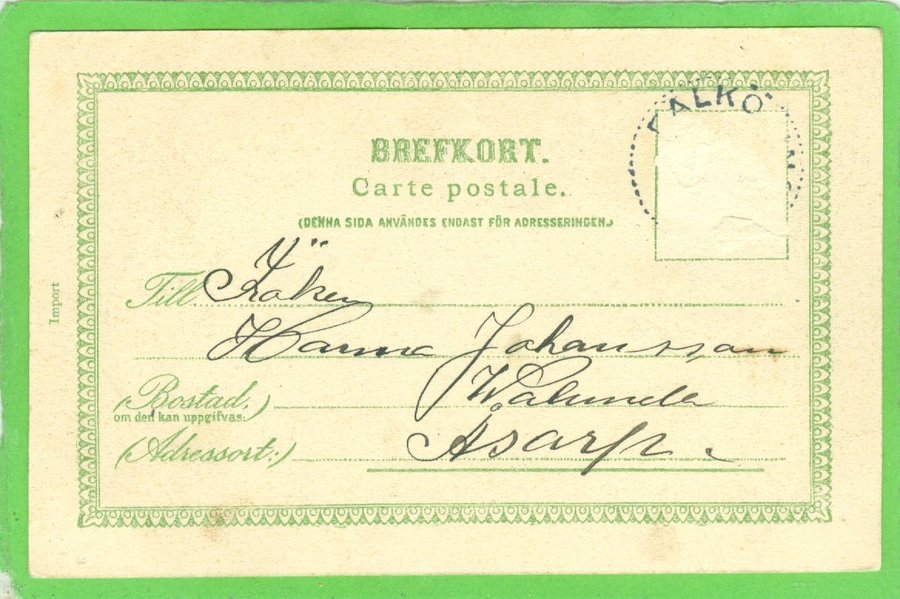 FALKÖ
BREFKORT.
Carte postale.
(DENNA SIDA ANVÄNDES ENDAST FÖR ADRESSERINGEN.)
Till Fröken
Hanna Johansson
(Bostad,)
om den kan uppgifvas:
(Adressort:) Åsarp
Import